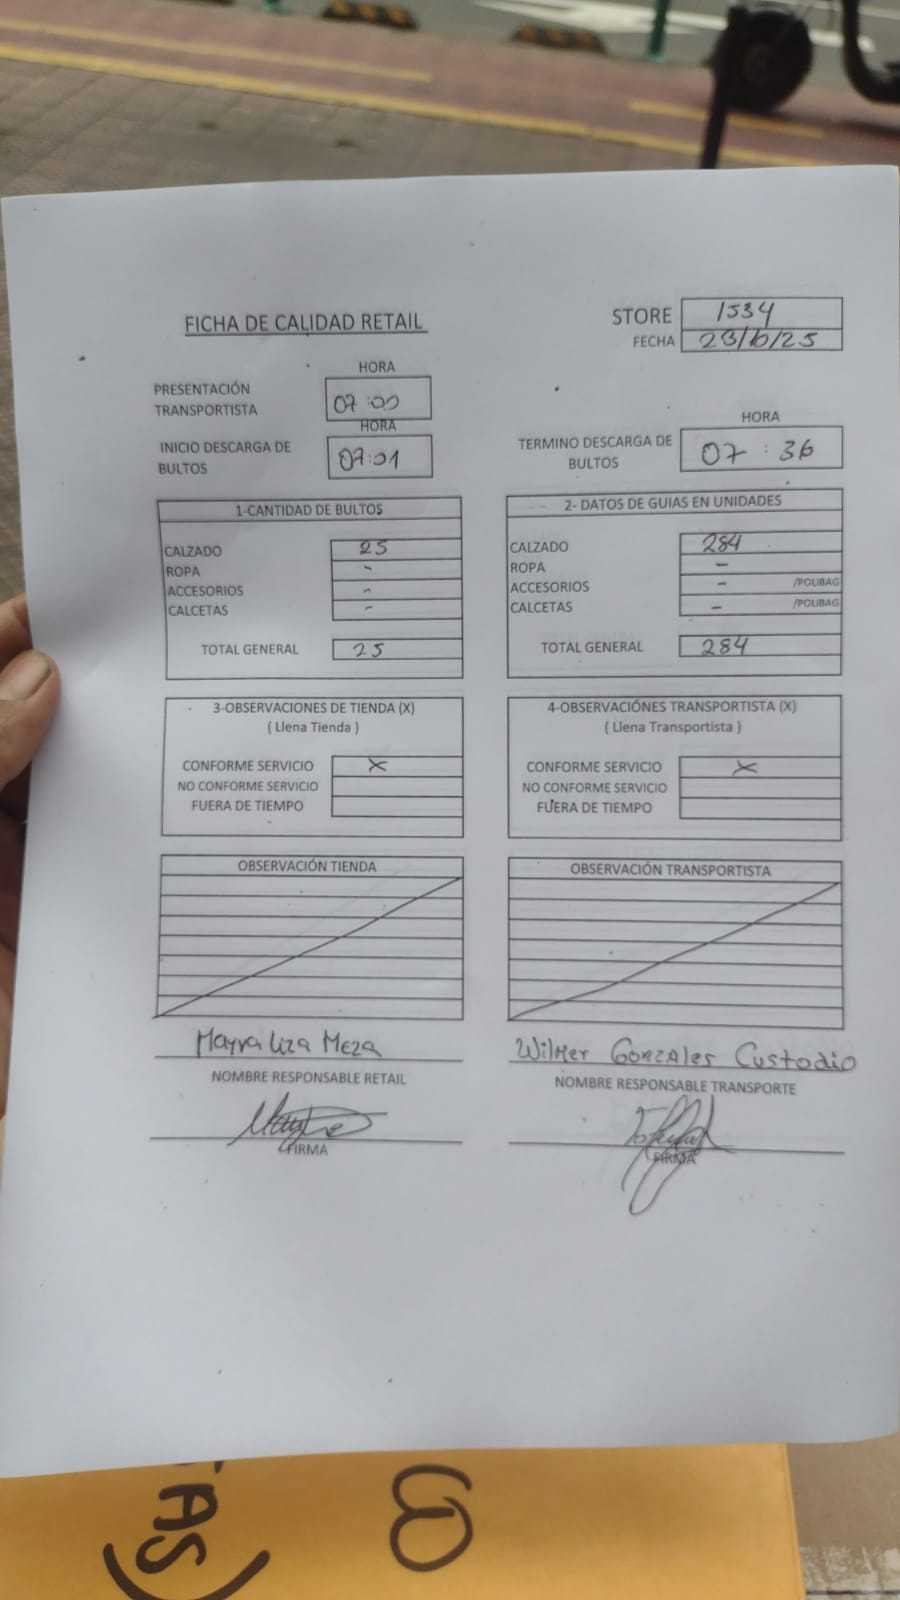 FICHA DE CALIDAD RETAIL
STORE 1534
FECHA 23/10/25
HORA
PRESENTACIÓN TRANSPORTISTA 07:00
HORA
INICIO DESCARGA DE BULTOS 07:01
HORA
TERMINO DESCARGA DE BULTOS 07:36
1-CANTIDAD DE BULTOS
CALZADO 25
ROPA -
ACCESORIOS -
CALCETAS -
TOTAL GENERAL 25
2- DATOS DE GUIAS EN UNIDADES
CALZADO 284
ROPA -
ACCESORIOS - /POLIBAG
CALCETAS - /POLIBAG
TOTAL GENERAL 284
3-OBSERVACIONES DE TIENDA (X)
( Llena Tienda )
CONFORME SERVICIO X
NO CONFORME SERVICIO
FUERA DE TIEMPO
4-OBSERVACIÓNES TRANSPORTISTA (X)
( Llena Transportista )
CONFORME SERVICIO X
NO CONFORME SERVICIO
FUERA DE TIEMPO
OBSERVACIÓN TIENDA
OBSERVACIÓN TRANSPORTISTA
Mayra Liza Meza
NOMBRE RESPONSABLE RETAIL
FIRMA
Wilmer Gonzales Custodio
NOMBRE RESPONSABLE TRANSPORTE
FIRMA